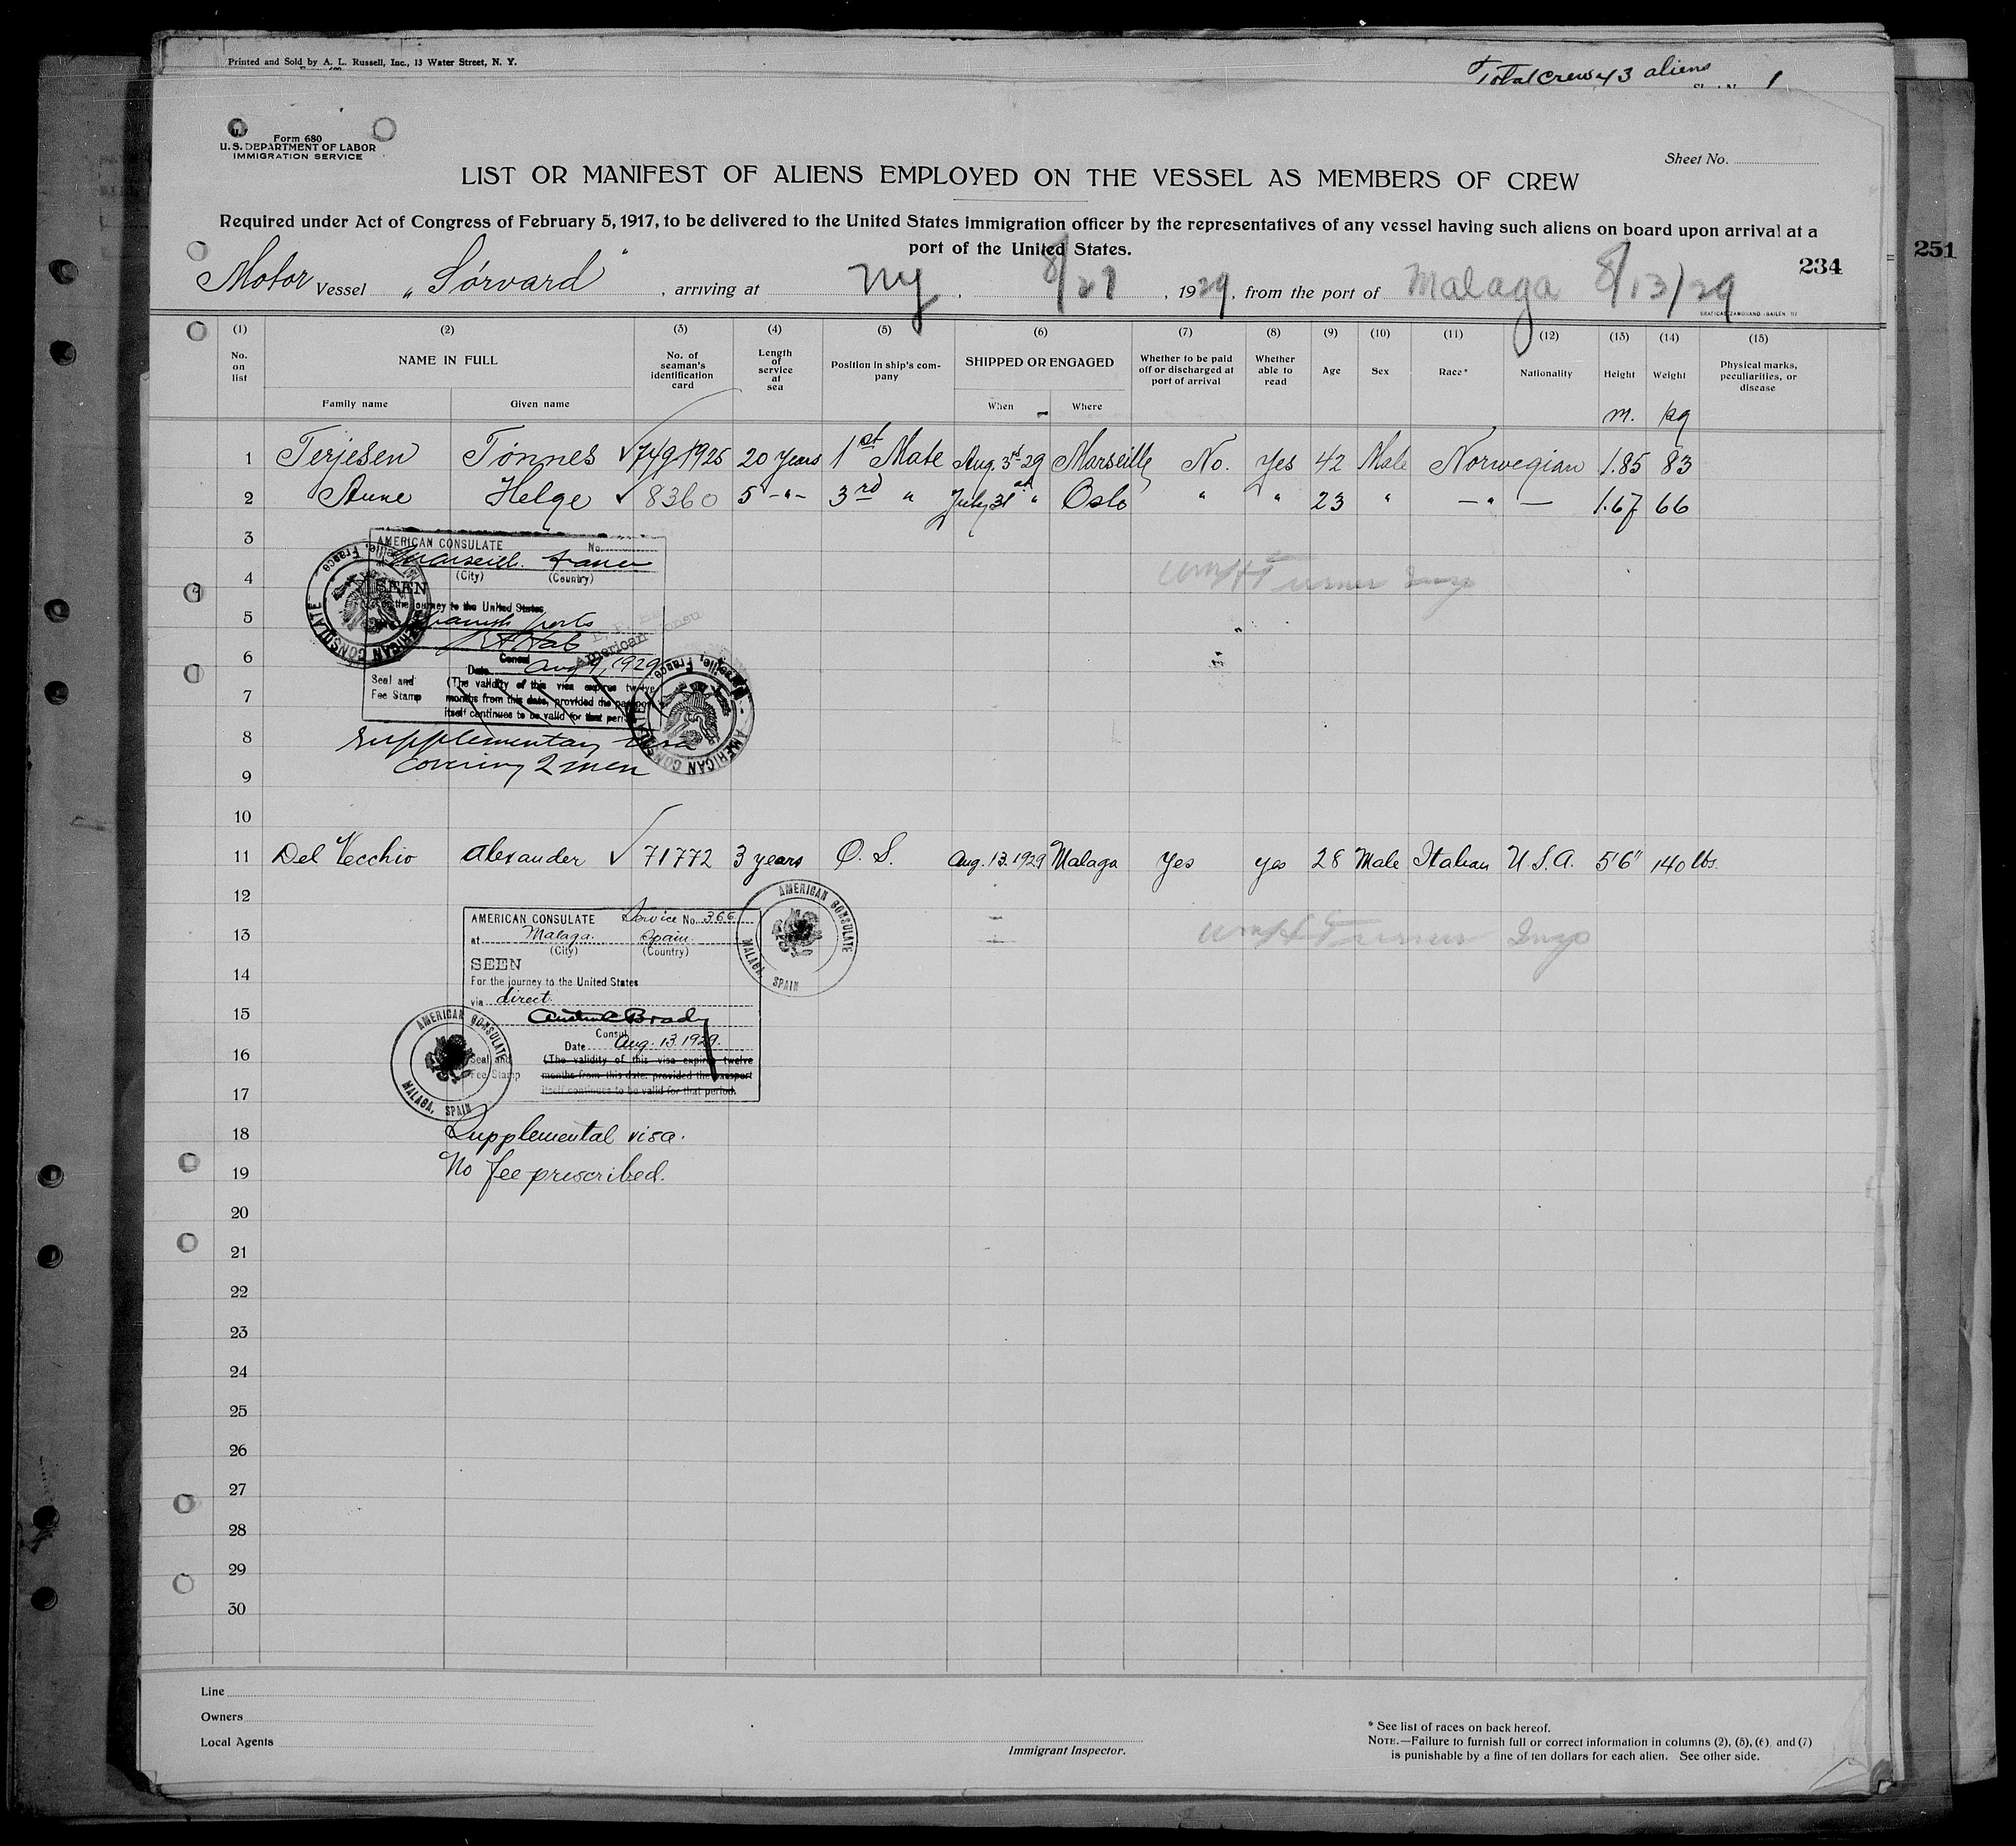 Printed and Sold by A. L. Russell, Inc., 13 Water Street, N. Y.
Total crew 43 aliens
1
Form 680
U. S. DEPARTMENT OF LABOR
IMMIGRATION SERVICE
Sheet No.
LIST OR MANIFEST OF ALIENS EMPLOYED ON THE VESSEL AS MEMBERS OF CREW
Required under Act of Congress of February 5, 1917, to be delivered to the United States immigration officer by the representatives of any vessel having such aliens on board upon arrival at a
port of the United States.
234
251
Motor Vessel „Sørvard“, arriving at NY, 8/21, 1929, from the port of Malaga 8/13/29
(1) (2) (3) (4) (5) (6) (7) (8) (9) (10) (11) (12) (13) (14) (15)
No. on list
NAME IN FULL
Family name
Given name
No. of seaman's identification card
Length of service at sea
Position in ship's company
SHIPPED OR ENGAGED
When
Where
Whether to be paid off or discharged at port of arrival
Whether able to read
Age
Sex
Race*
Nationality
Height
Weight
Physical marks, peculiarities, or disease
m. kg
1 Terjesen Tønnes ✓ 749/1925 20 years 1st Mate Aug. 3rd 29 Marseille No. Yes 42 Male Norwegian 1.85 83
2 Aune Helge ✓ 8360 5 -"- 3rd " July 31st " Oslo " " 23 " -"- 1.67 66
3
4
5
6
7
8
9
10
AMERICAN CONSULATE No.
Marseille France
(City) (Country)
SEEN
the journey to the United States
Spanish ports
American Consu
Consul
Date Aug 9, 1929
Seal and Fee Stamp
(The validity of this visa expires twelve
months from this date, provided the passport
itself continues to be valid for that period
AMERICAN CONSULATE Marseille, France
AMERICAN CONSULATE
Supplementary visa
covering 2 men
11 Del Vecchio Alexander ✓ 71772 3 years O. S. Aug. 13. 1929 Malaga Yes yes 28 Male Italian U.S.A. 5'6" 140 lbs.
12
13
14
15
16
17
AMERICAN CONSULATE Service No. 366
at Malaga. Spain.
(City) (Country)
SEEN
For the journey to the United States
via direct.
Brady
Consul
Date Aug. 13. 1929.
Seal and Fee Stamp
(The validity of this visa expires twelve
months from this date, provided the passport
itself continues to be valid for that period.
AMERICAN CONSULATE MALAGA, SPAIN
AMERICAN CONSULATE MALAGA, SPAIN
18 Supplemental visa.
19 No fee prescribed.
20
21
22
23
24
25
26
27
28
29
30
Line
Owners
Local Agents
Immigrant Inspector.
* See list of races on back hereof.
NOTE.—Failure to furnish full or correct information in columns (2), (5), (6), and (7)
is punishable by a fine of ten dollars for each alien. See other side.